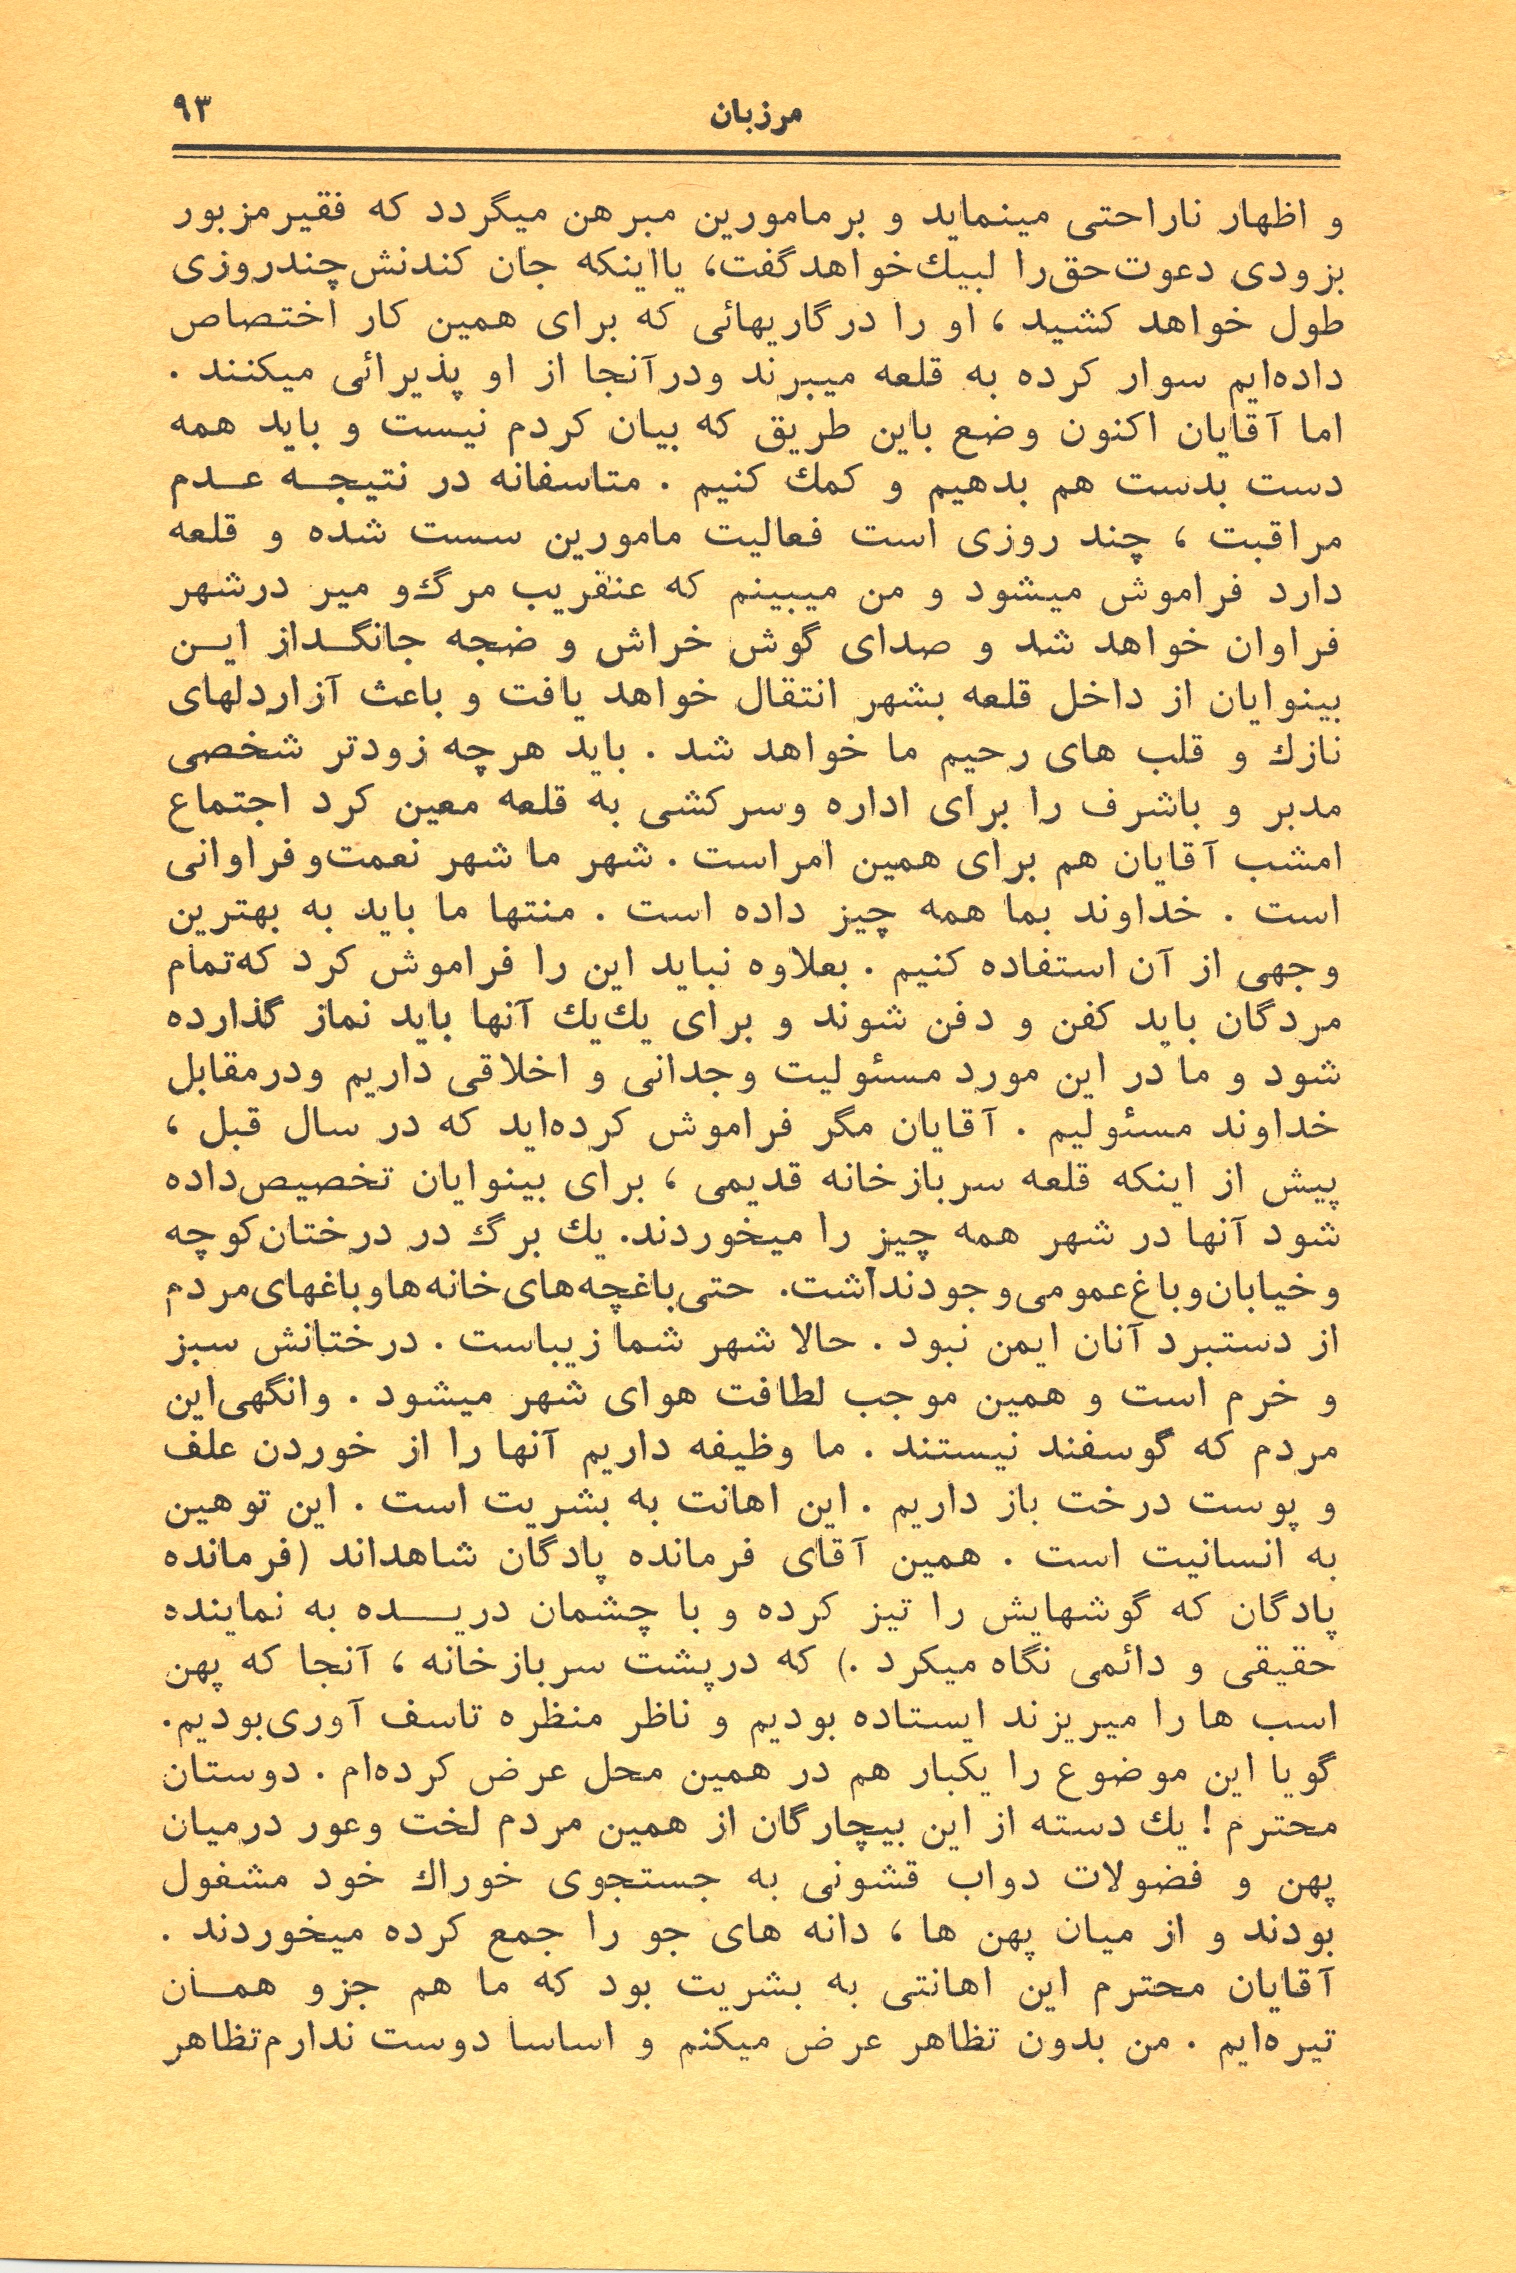 مرزبان ۹۳
و اظهار ناراحتی مینماید و برمامورین مبرهن میگردد که فقیرمزبور
بزودی دعوت‌حق‌را لبیك‌خواهدگفت، یااینکه جان کندنش‌چندروزی
طول خواهد کشید ، او را درگاریهائی که برای همین کار اختصاص
داده‌ایم سوار کرده به قلعه میبرند ودرآنجا از او پذیرائی میکنند .
اما آقایان اکنون وضع باین طریق که بیان کردم نیست و باید همه
دست بدست هم بدهیم و کمك کنیم . متاسفانه در نتیجـه عـدم
مراقبت ، چند روزی است فعالیت مامورین سست شده و قلعه
دارد فراموش میشود و من میبینم که عنقریب مرگ‌و میر درشهر
فراوان خواهد شد و صدای گوش خراش و ضجه جانگـداز ایـن
بینوایان از داخل قلعه بشهر انتقال خواهد یافت و باعث آزاردلهای
نازك و قلب های رحیم ما خواهد شد . باید هرچه زودتر شخصی
مدبر و باشرف را برای اداره وسرکشی به قلعه معین کرد اجتماع
امشب آقایان هم برای همین امراست . شهر ما شهر نعمت‌وفراوانی
است . خداوند بما همه چیز داده است . منتها ما باید به بهترین
وجهی از آن استفاده کنیم . بعلاوه نباید این را فراموش کرد که‌تمام
مردگان باید کفن و دفن شوند و برای یك‌یك آنها باید نماز گذارده
شود و ما در این مورد مسئولیت وجدانی و اخلاقی داریم ودرمقابل
خداوند مسئولیم . آقایان مگر فراموش کرده‌اید که در سال قبل ،
پیش از اینکه قلعه سربازخانه قدیمی ، برای بینوایان تخصیص‌داده
شود آنها در شهر همه چیز را میخوردند. یك برگ در درختان‌کوچه
وخیابان‌وباغ‌عمومی‌وجودنداشت. حتی‌باغچه‌های‌خانه‌هاوباغهای‌مردم
از دستبرد آنان ایمن نبود . حالا شهر شما زیباست . درختانش سبز
و خرم است و همین موجب لطافت هوای شهر میشود . وانگهی‌این
مردم که گوسفند نیستند . ما وظیفه داریم آنها را از خوردن علف
و پوست درخت باز داریم . این اهانت به بشریت است . این توهین
به انسانیت است . همین آقای فرمانده پادگان شاهداند (فرمانده
پادگان که گوشهایش را تیز کرده و با چشمان دریـــده به نماینده
حقیقی و دائمی نگاه میکرد .) که درپشت سربازخانه ، آنجا که پهن
اسب ها را میریزند ایستاده بودیم و ناظر منظره تاسف آوری‌بودیم.
گویا این موضوع را یکبار هم در همین محل عرض کرده‌ام . دوستان
محترم ! یك دسته از این بیچارگان از همین مردم لخت وعور درمیان
پهن و فضولات دواب قشونی به جستجوی خوراك خود مشغول
بودند و از میان پهن ها ، دانه های جو را جمع کرده میخوردند .
آقایان محترم این اهانتی به بشریت بود که ما هم جزو همـان
تیره‌ایم . من بدون تظاهر عرض میکنم و اساسا دوست ندارم‌تظاهر